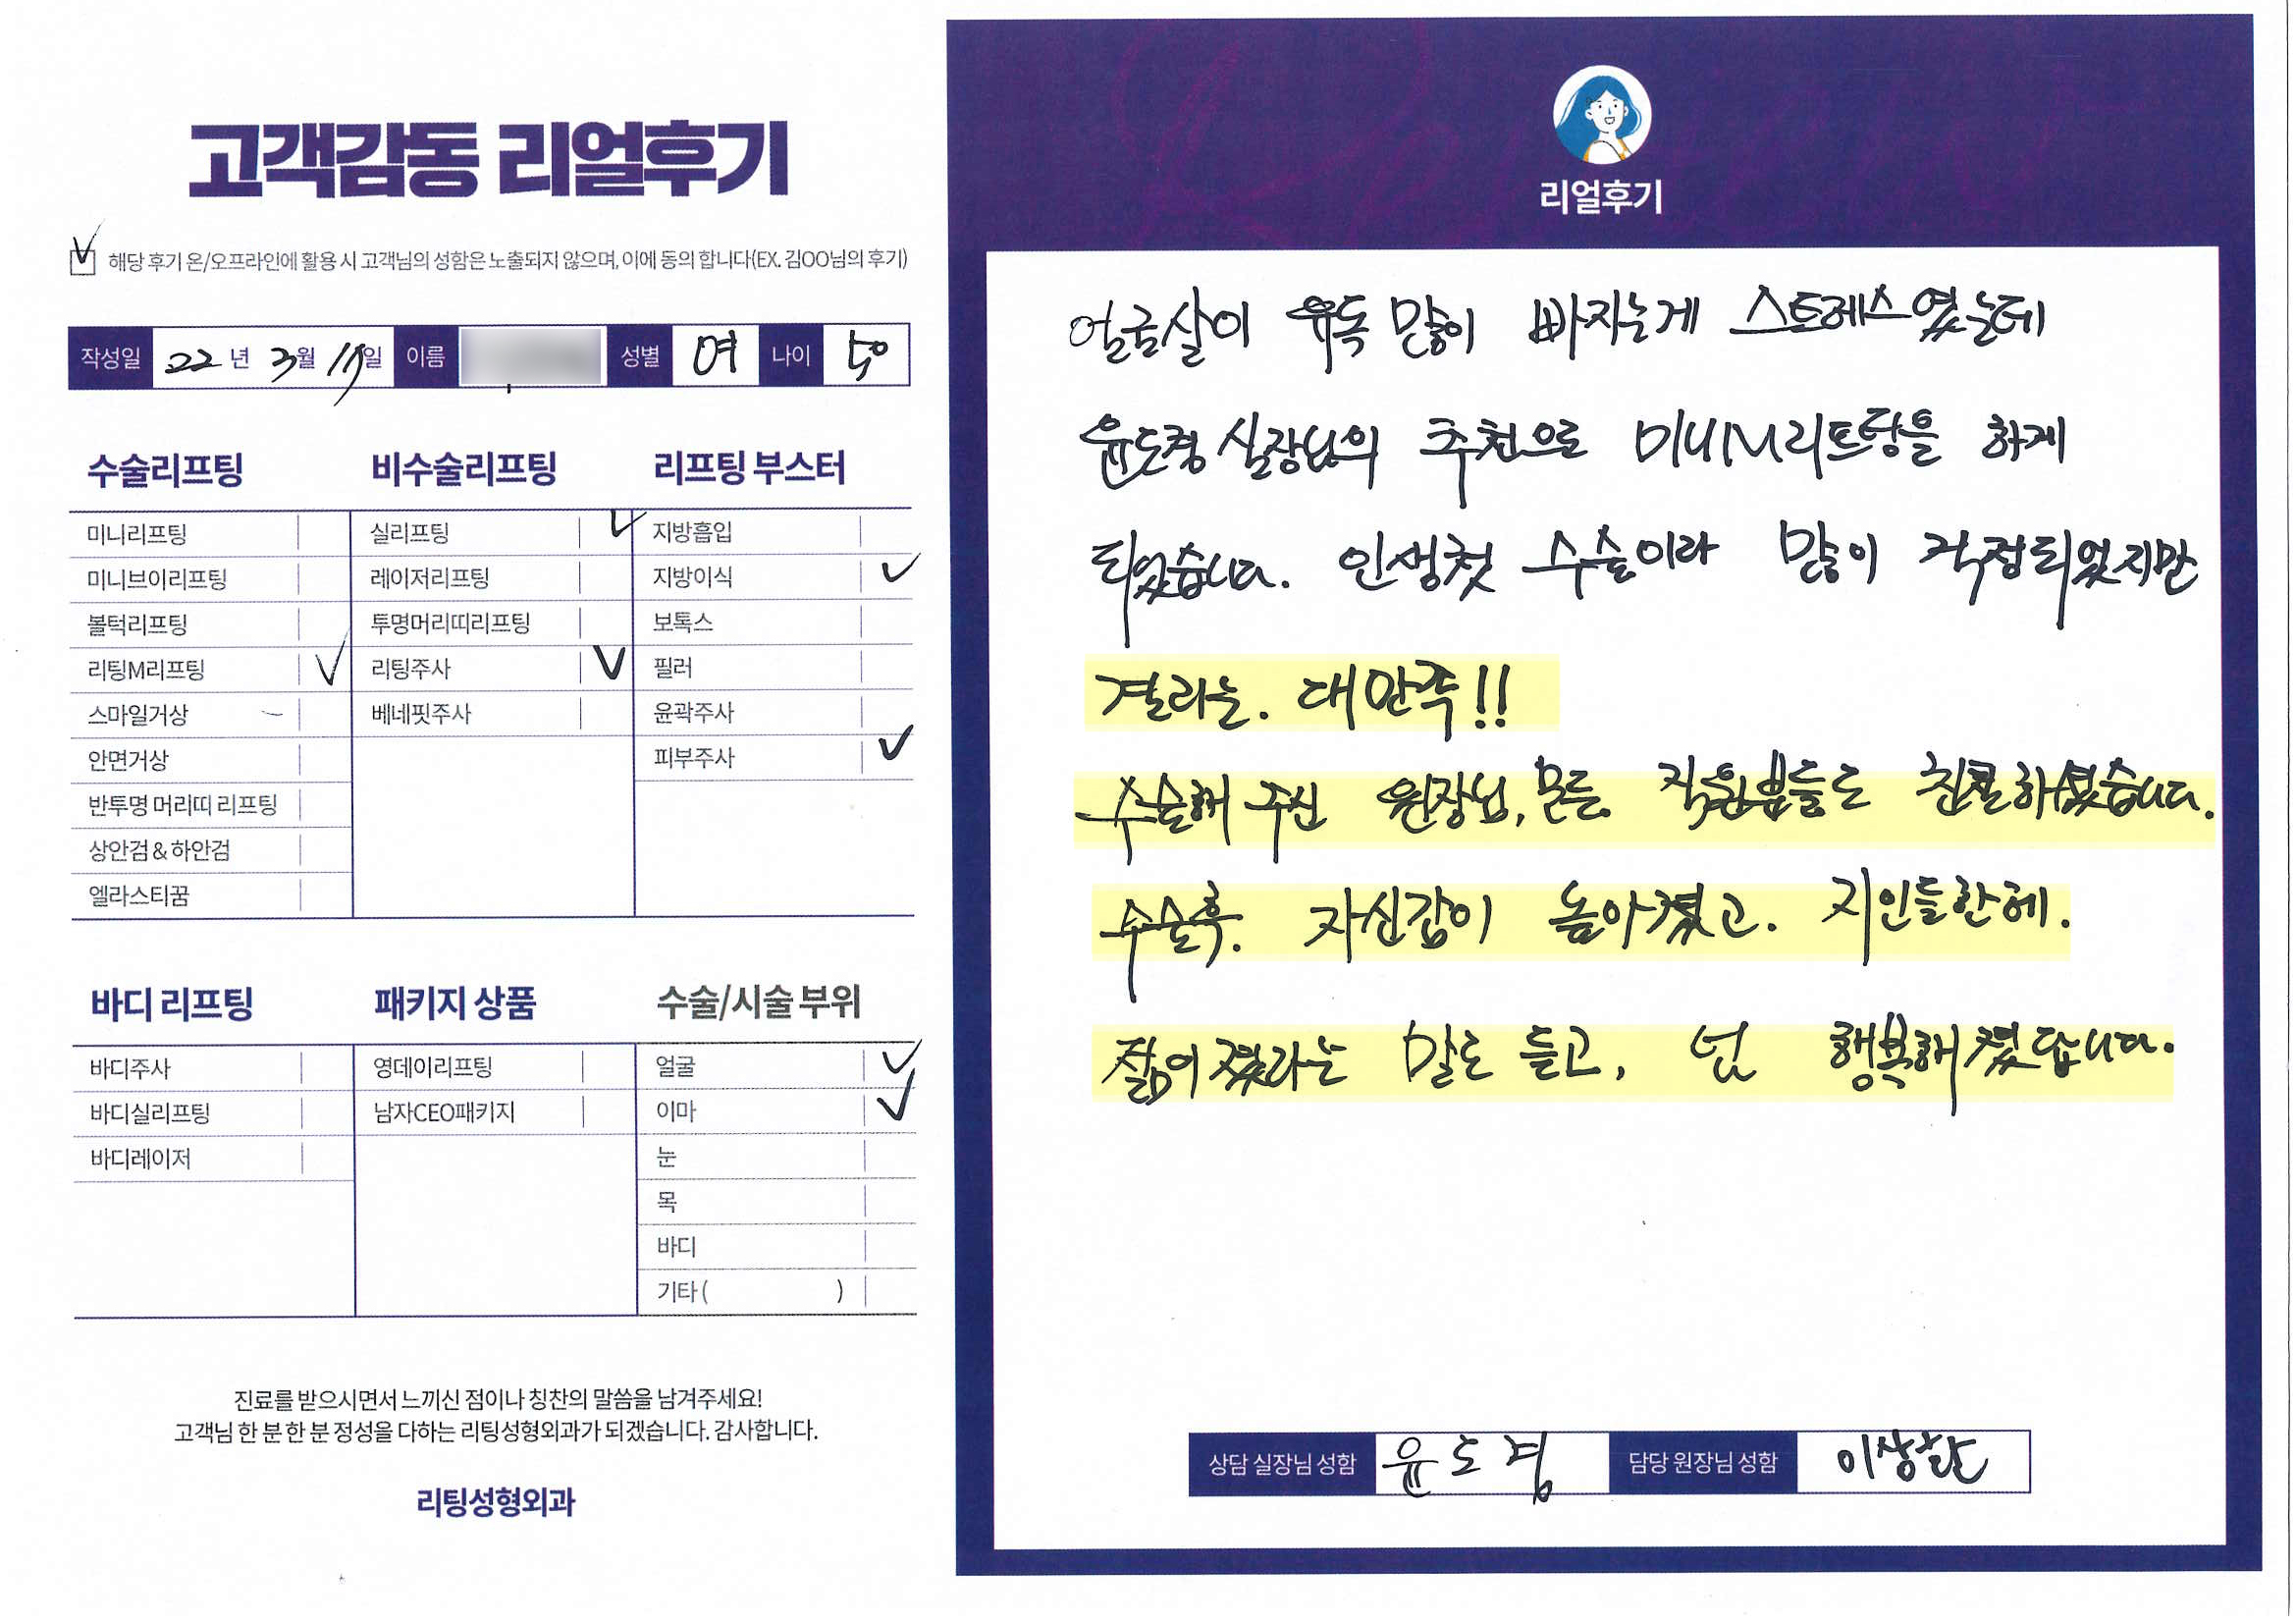 고객감동 리얼후기
해당 후기 온/오프라인에 활용 시 고객님의 성함은 노출되지 않으며, 이에 동의 합니다(EX. 김OO님의 후기)
작성일 22년 3월 11일 이름 성별 여 나이 50
수술리프팅
미니리프팅
미니브이리프팅
볼턱리프팅
리팅M리프팅
스마일거상
안면거상
반투명 머리띠 리프팅
상안검 & 하안검
엘라스티꿈
비수술리프팅
실리프팅
레이저리프팅
투명머리띠리프팅
리팅주사
베네핏주사
리프팅 부스터
지방흡입
지방이식
보톡스
필러
윤곽주사
피부주사
바디 리프팅
바디주사
바디실리프팅
바디레이저
패키지 상품
영데이리프팅
남자CEO패키지
수술/시술 부위
얼굴
이마
눈
목
바디
기타 ( )
진료를 받으시면서 느끼신 점이나 칭찬의 말씀을 남겨주세요!
고객님 한 분 한 분 정성을 다하는 리팅성형외과가 되겠습니다. 감사합니다.
리팅성형외과
리얼후기
얼굴살이 유독 많이 빠지는게 스트레스였는데
윤도경 실장님의 추천으로 미니M리프팅을 하게
되었습니다. 인생첫 수술이라 많이 걱정되었지만
결과는. 대만족!!
수술해 주신 원장님, 모든 직원분들도 친절하셨습니다.
수술후. 자신감이 높아졌고. 지인들한테.
젊어졌다는 말도 듣고, 넘 행복해졌답니다.
상담 실장님 성함 윤도경 담당 원장님 성함